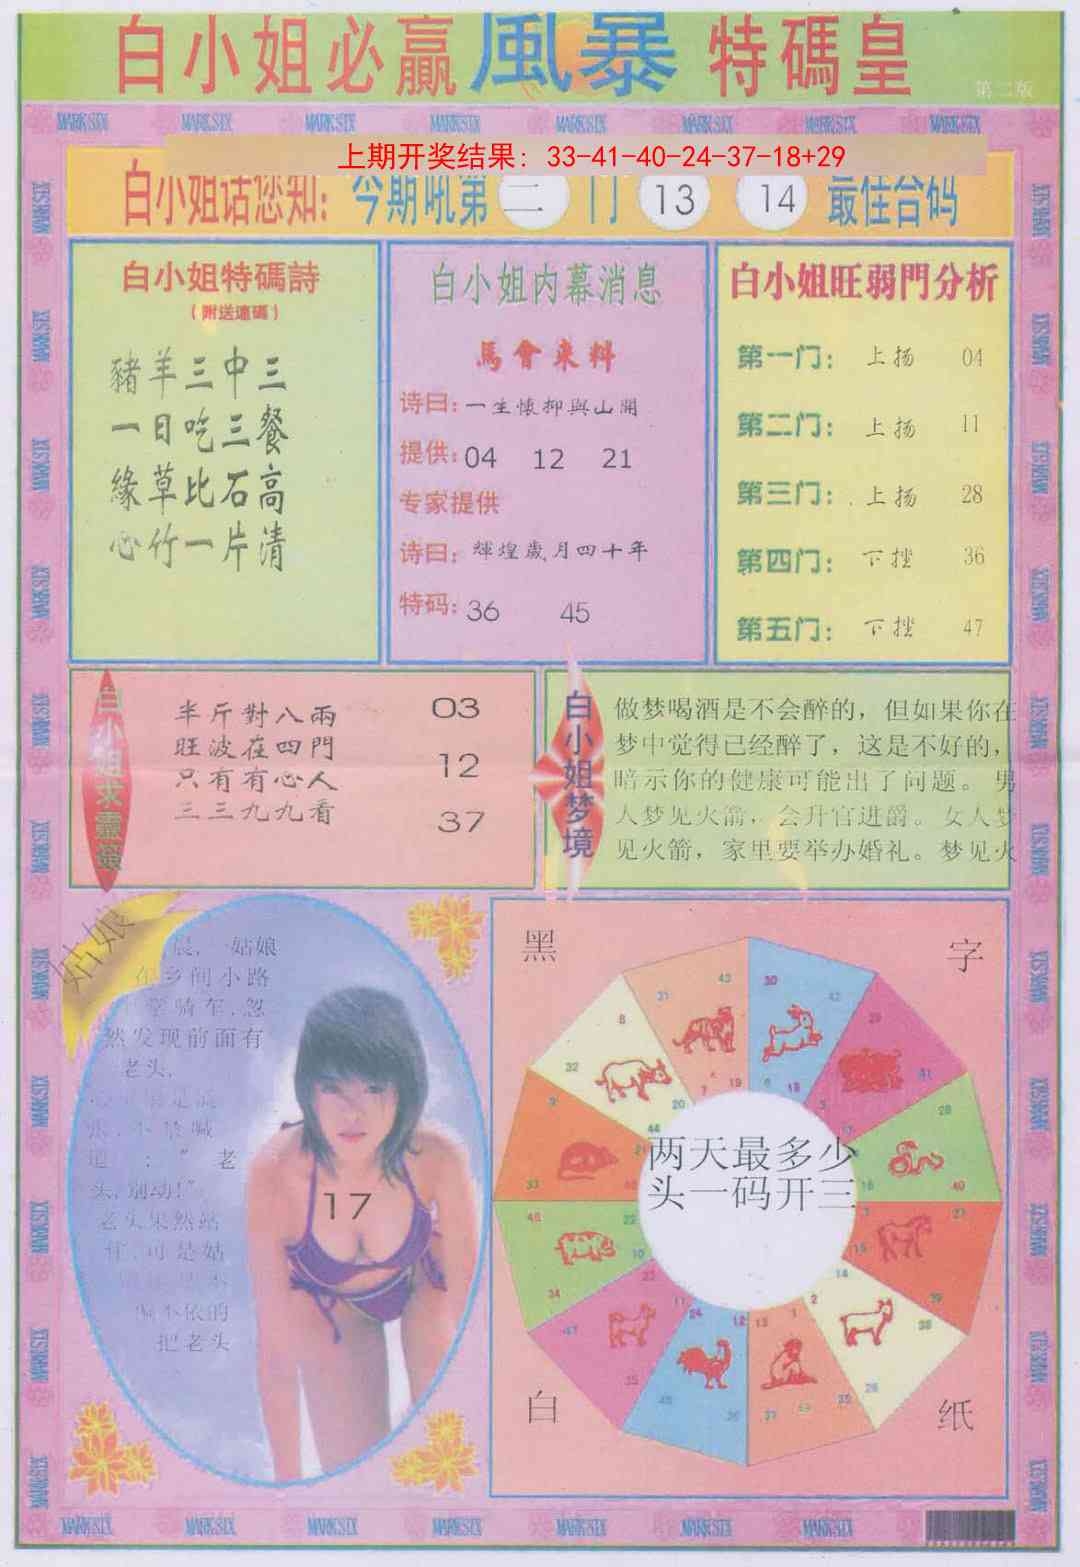 白小姐必贏風暴特碼皇
第二版
MARK SIX MARK SIX MARK SIX MARK SIX MARK SIX MARK SIX MARK SIX MARK SIX
上期开奖结果: 33-41-40-24-37-18+29
白小姐话您知: 今期吼第二门 13 14 最佳合码
白小姐特碼詩
(附送連碼)
豬羊三中三
一日吃三餐
緣草比石高
心竹一片清
白小姐内幕消息
馬會來料
诗曰: 一生懷抑與山開
提供: 04 12 21
专家提供
诗曰: 輝煌歲月四十年
特码: 36 45
白小姐旺弱門分析
第一门: 上扬 04
第二门: 上扬 11
第三门: 上扬 28
第四门: 下挫 36
第五门: 下挫 47
白小姐求靈簽
半斤對八兩 03
旺波在四門
只有有心人 12
三三九九看 37
白小姐梦境
做梦喝酒是不会醉的，但如果你在
梦中觉得已经醉了，这是不好的，
暗示你的健康可能出了问题。男
人梦见火箭，会升官进爵。女人梦
见火箭，家里要举办婚礼。梦见火
姑娘
晨,一姑娘
在乡间小路
骑车,忽
然发现前面有
老头,
喊
道:"老
头,别动!"
老头果然站
住,可是姑
不依的
把老头
17
黑 字
两天最多少
头一码开三
白 纸
MARK SIX MARK SIX MARK SIX MARK SIX MARK SIX MARK SIX MARK SIX